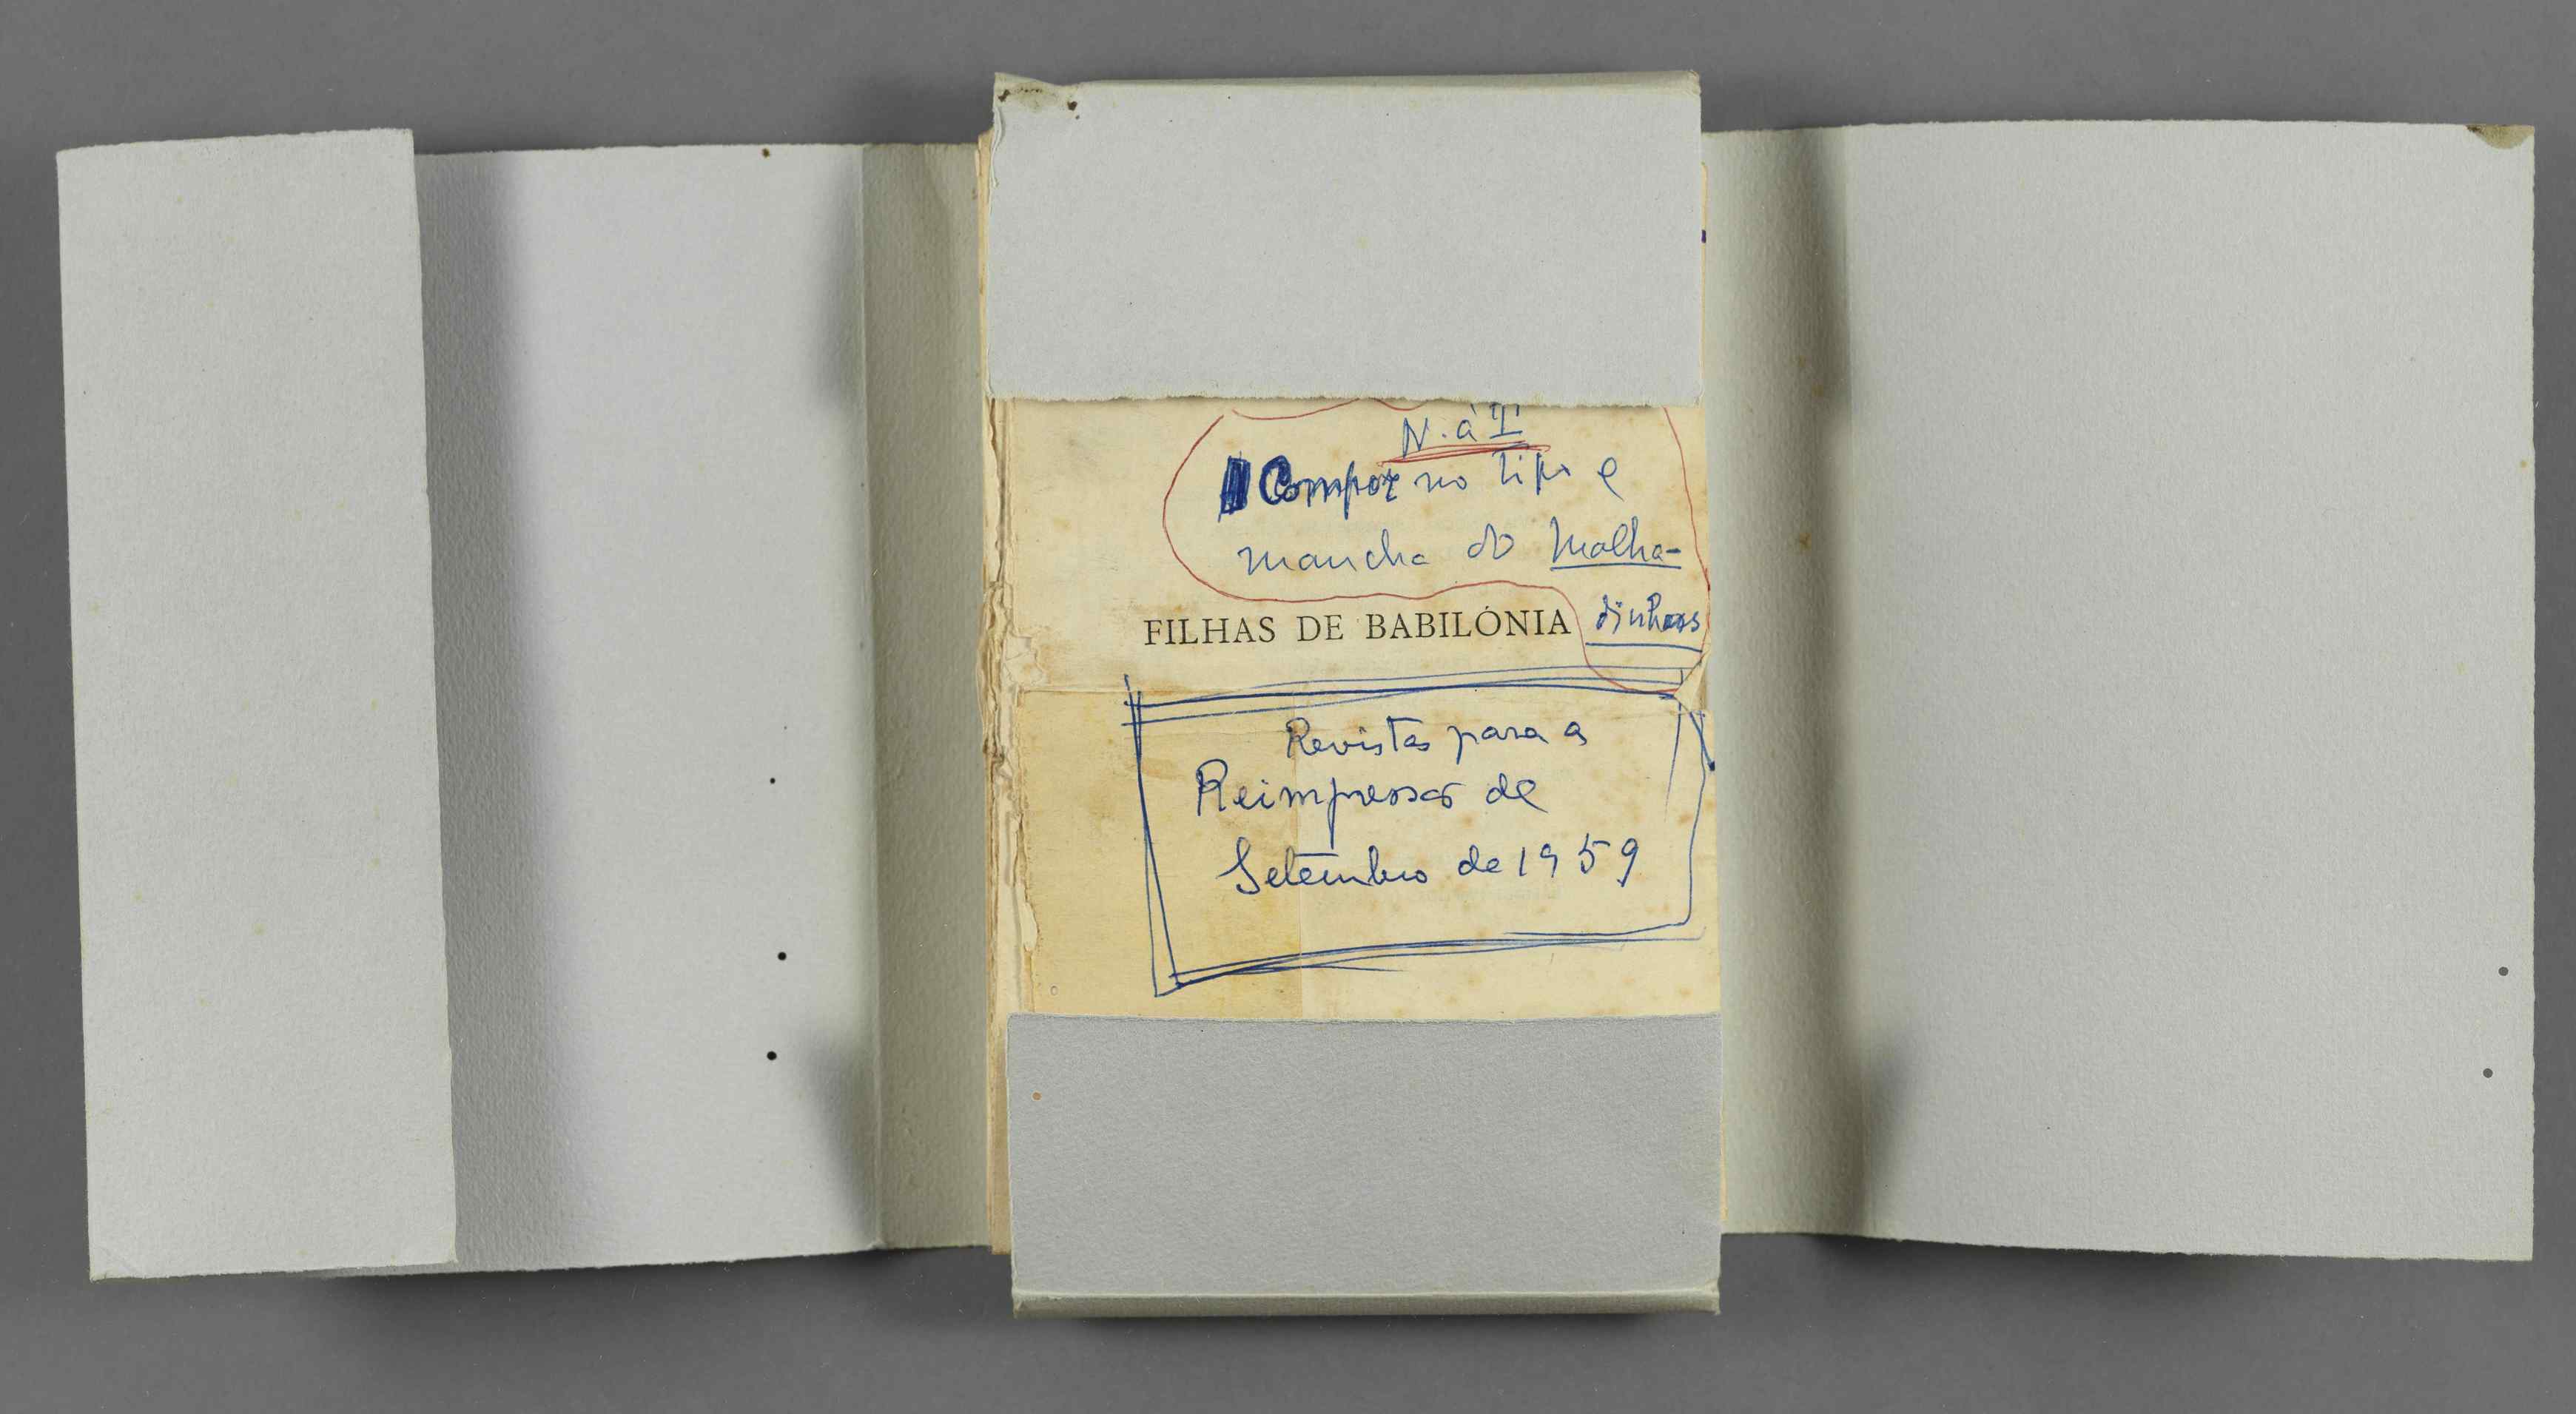 N. à T.
Compor no tipo e
mancha do Malha-
dinhas
FILHAS DE BABILÓNIA
Revistas para a
Reimpressão de
Setembro de 1959